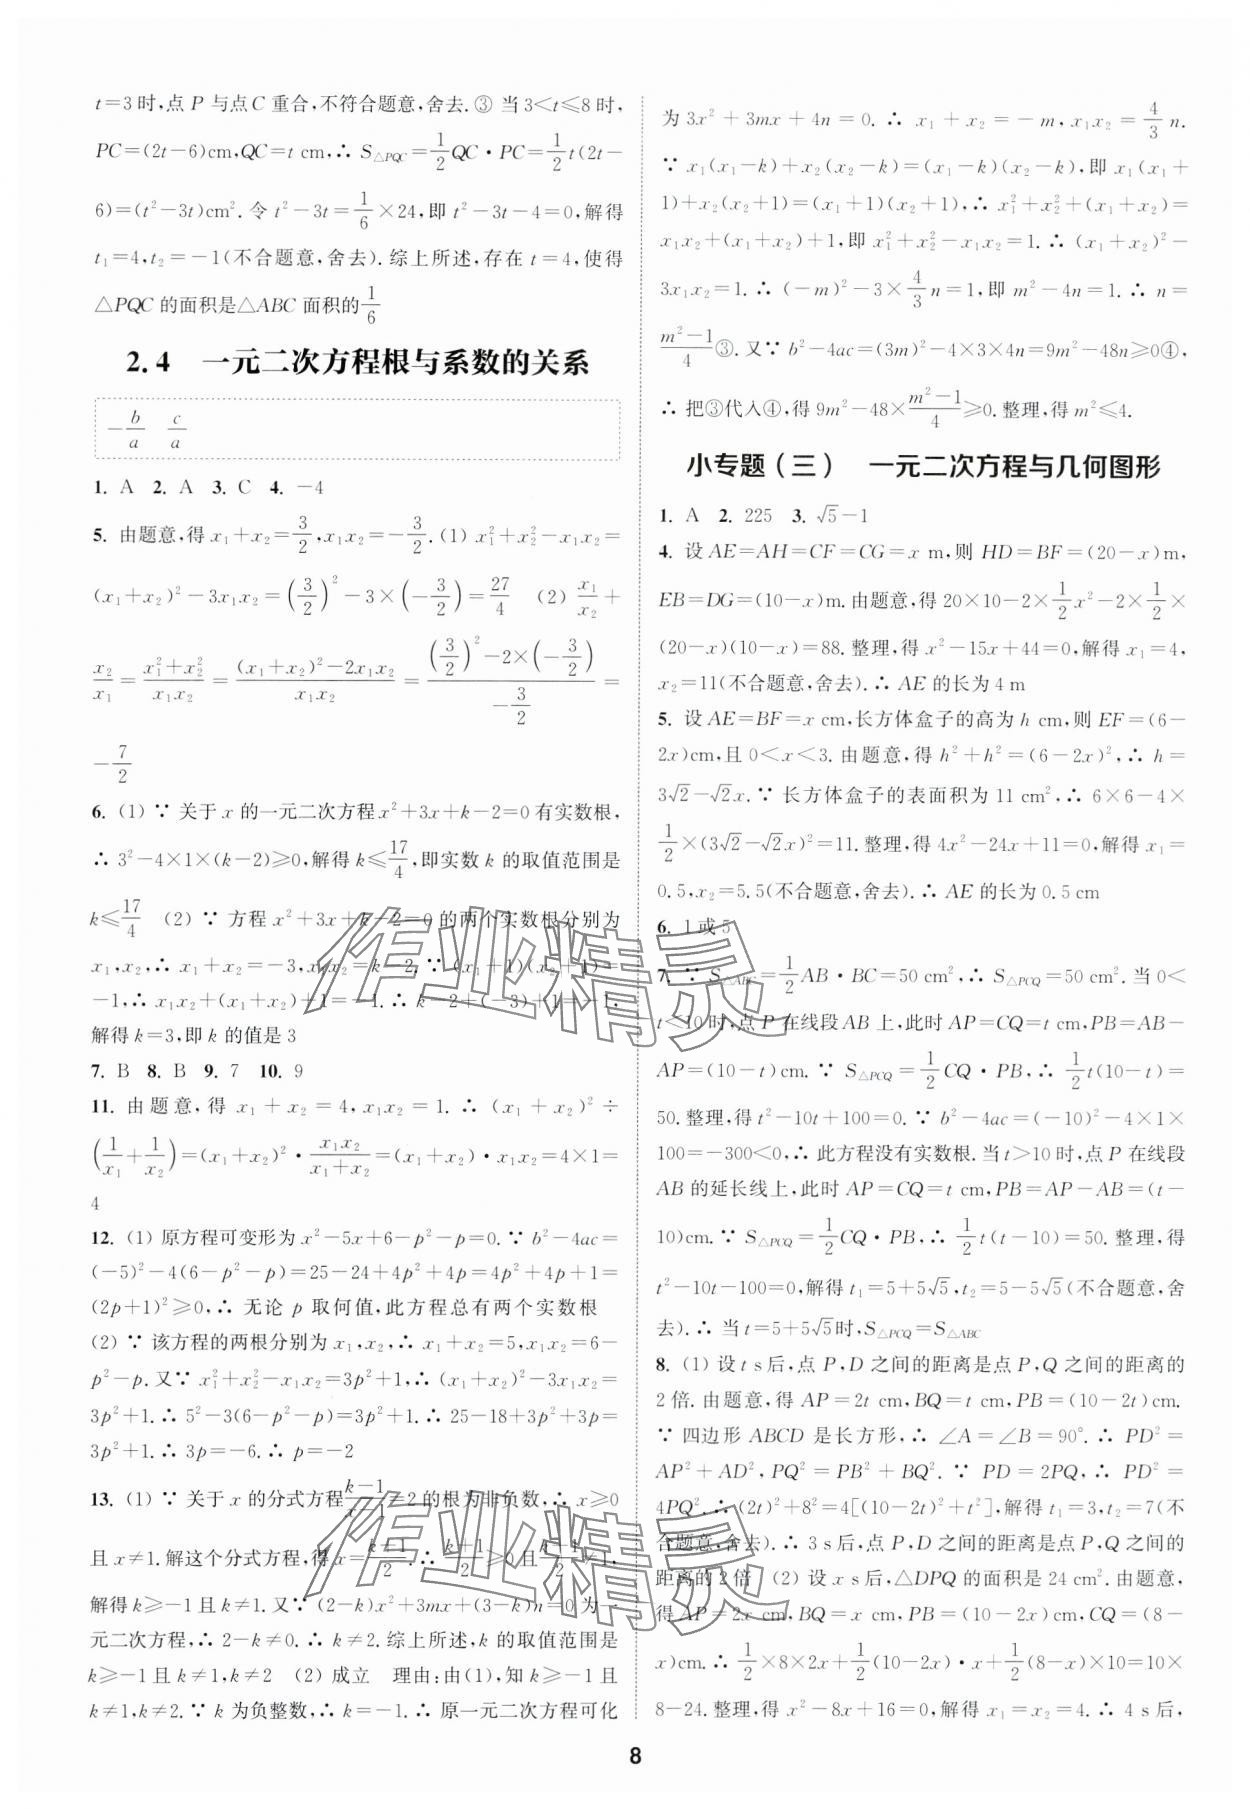 t=3时,点 P 与点 C 重合,不符合题意,舍去.③ 当 3<t≤8 时,
PC=(2t-6)cm,QC=t cm,∴ S△PQC=1/2QC·PC=1/2t(2t-
6)=(t²-3t)cm². 令 t²-3t=1/6×24,即 t²-3t-4=0,解得
t₁=4,t₂=-1(不合题意,舍去).综上所述,存在 t=4,使得
△PQC 的面积是△ABC 面积的1/6
2.4 一元二次方程根与系数的关系
-b/a c/a
1. A 2. A 3. C 4. -4
5. 由题意,得 x₁+x₂=3/2,x₁x₂=-3/2.(1) x₁²+x₂²-x₁x₂=
(x₁+x₂)²-3x₁x₂=(3/2)²-3×(-3/2)=27/4 (2) x₁/x₂+
x₂/x₁=(x₁²+x₂²)/(x₁x₂)=((x₁+x₂)²-2x₁x₂)/(x₁x₂)=((3/2)²-2×(-3/2))/(-3/2)=
-7/2
6. (1) ∵ 关于 x 的一元二次方程 x²+3x+k-2=0 有实数根,
∴ 3²-4×1×(k-2)≥0,解得 k≤17/4,即实数 k 的取值范围是
k≤17/4 (2) ∵ 方程 x²+3x+k-2=0 的两个实数根分别为
x₁,x₂,∴ x₁+x₂=-3,x₁x₂=k-2.∵ (x₁+1)(x₂+1)=
-1,∴ x₁x₂+(x₁+x₂)+1=-1.∴ k-2+(-3)+1=-1,
解得 k=3,即 k 的值是 3
7. B 8. B 9. 7 10. 9
11. 由题意,得 x₁+x₂=4,x₁x₂=1.∴ (x₁+x₂)²÷
(1/x₁+1/x₂)=(x₁+x₂)²·x₁x₂/(x₁+x₂)=(x₁+x₂)·x₁x₂=4×1=
4
12. (1) 原方程可变形为 x²-5x+6-p²-p=0.∵ b²-4ac=
(-5)²-4(6-p²-p)=25-24+4p²+4p=4p²+4p+1=
(2p+1)²≥0,∴ 无论 p 取何值,此方程总有两个实数根
(2) ∵ 该方程的两根分别为 x₁,x₂,∴ x₁+x₂=5,x₁x₂=6-
p²-p.又∵ x₁²+x₂²-x₁x₂=3p²+1,∴ (x₁+x₂)²-3x₁x₂=
3p²+1.∴ 5²-3(6-p²-p)=3p²+1.∴ 25-18+3p²+3p=
3p²+1.∴ 3p=-6.∴ p=-2
13. (1) ∵ 关于 x 的分式方程(k-1)/(x-1)=2 的根为非负数,∴ x≥0
且 x≠1.解这个分式方程,得 x=(k+1)/2.∴ (k+1)/2≥0 且(k+1)/2≠1,
解得 k≥-1 且 k≠1.又∵ (2-k)x²+3mx+(3-k)n=0 为一
元二次方程,∴ 2-k≠0.∴ k≠2.综上所述,k 的取值范围是
k≥-1 且 k≠1,k≠2 (2) 成立 理由:由(1),知 k≥-1 且
k≠1,k≠2.∵ k 为负整数,∴ k=-1.∴ 原一元二次方程可化
为 3x²+3mx+4n=0.∴ x₁+x₂=-m,x₁x₂=4/3n.
∵ x₁(x₁-k)+x₂(x₂-k)=(x₁-k)(x₂-k),即 x₁(x₁+
1)+x₂(x₂+1)=(x₁+1)(x₂+1),∴ x₁²+x₂²+(x₁+x₂)=
x₁x₂+(x₁+x₂)+1,即 x₁²+x₂²-x₁x₂=1.∴ (x₁+x₂)²-
3x₁x₂=1.∴ (-m)²-3×4/3n=1,即 m²-4n=1.∴ n=
(m²-1)/4③.又∵ b²-4ac=(3m)²-4×3×4n=9m²-48n≥0④,
∴ 把③代入④,得 9m²-48×(m²-1)/4≥0.整理,得 m²≤4.
小专题(三) 一元二次方程与几何图形
1. A 2. 225 3. √5-1
4. 设 AE=AH=CF=CG=x m,则 HD=BF=(20-x)m,
EB=DG=(10-x)m.由题意,得 20×10-2×1/2x²-2×1/2×
(20-x)(10-x)=88.整理,得 x²-15x+44=0,解得 x₁=4,
x₂=11(不合题意,舍去).∴ AE 的长为 4 m
5. 设 AE=BF=x cm,长方体盒子的高为 h cm,则 EF=(6-
2x)cm,且 0<x<3.由题意,得 h²+h²=(6-2x)²,∴ h=
3√2-√2x.∵ 长方体盒子的表面积为 11 cm²,∴ 6×6-4×
1/2×(3√2-√2x)²=11.整理,得 4x²-24x+11=0,解得 x₁=
0.5,x₂=5.5(不合题意,舍去).∴ AE 的长为 0.5 cm
6. 1或5
7. ∵ S△ABC=1/2AB·BC=50 cm²,∴ S△PCQ=50 cm².当 0<
t<10时,点 P 在线段 AB 上,此时 AP=CQ=t cm,PB=AB-
AP=(10-t)cm.∵ S△PCQ=1/2CQ·PB,∴ 1/2t(10-t)=
50.整理,得 t²-10t+100=0.∵ b²-4ac=(-10)²-4×1×
100=-300<0,∴ 此方程没有实数根.当 t>10 时,点 P 在线段
AB 的延长线上,此时 AP=CQ=t cm,PB=AP-AB=(t-
10)cm.∵ S△PCQ=1/2CQ·PB,∴ 1/2t(t-10)=50.整理,得
t²-10t-100=0,解得 t₁=5+5√5,t₂=5-5√5(不合题意,舍
去).∴ 当 t=5+5√5时,S△PCQ=S△ABC
8. (1) 设 t s后,点 P,D 之间的距离是点 P,Q 之间的距离的
2倍.由题意,得 AP=2t cm,BQ=t cm,PB=(10-2t)cm.
∵ 四边形 ABCD 是长方形,∴ ∠A=∠B=90°.∴ PD²=
AP²+AD²,PQ²=PB²+BQ².∵ PD=2PQ,∴ PD²=
4PQ².∴ (2t)²+8²=4[(10-2t)²+t²],解得 t₁=3,t₂=7(不
合题意,舍去).∴ 3 s后,点 P,D 之间的距离是点 P,Q 之间的
距离的2倍 (2) 设 x s后,△DPQ 的面积是 24 cm².由题意,
得 AP=2x cm,BQ=x cm,PB=(10-2x)cm,CQ=(8-
x)cm.∴ 1/2×8×2x+1/2(10-2x)·x+1/2(8-x)×10=10×
8-24.整理,得 x²-8x+16=0,解得 x₁=x₂=4.∴ 4 s后,
8
作业精灵
作业精灵